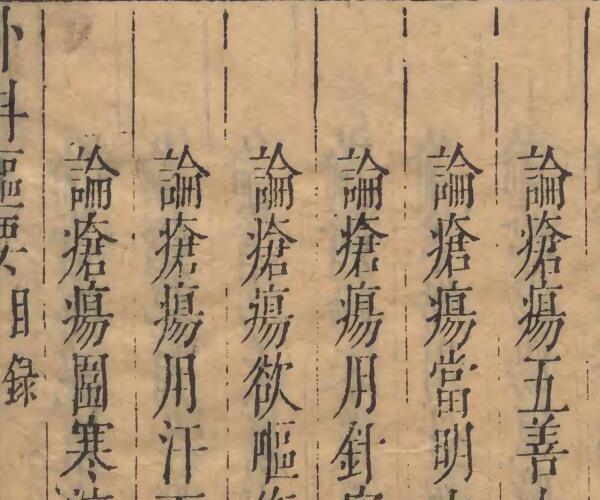 論瘡瘍五善
論瘡瘍當明
論瘡瘍用針
論瘡瘍欲嘔
論瘡瘍用汗
論瘡瘍圍寒
外科樞要目錄